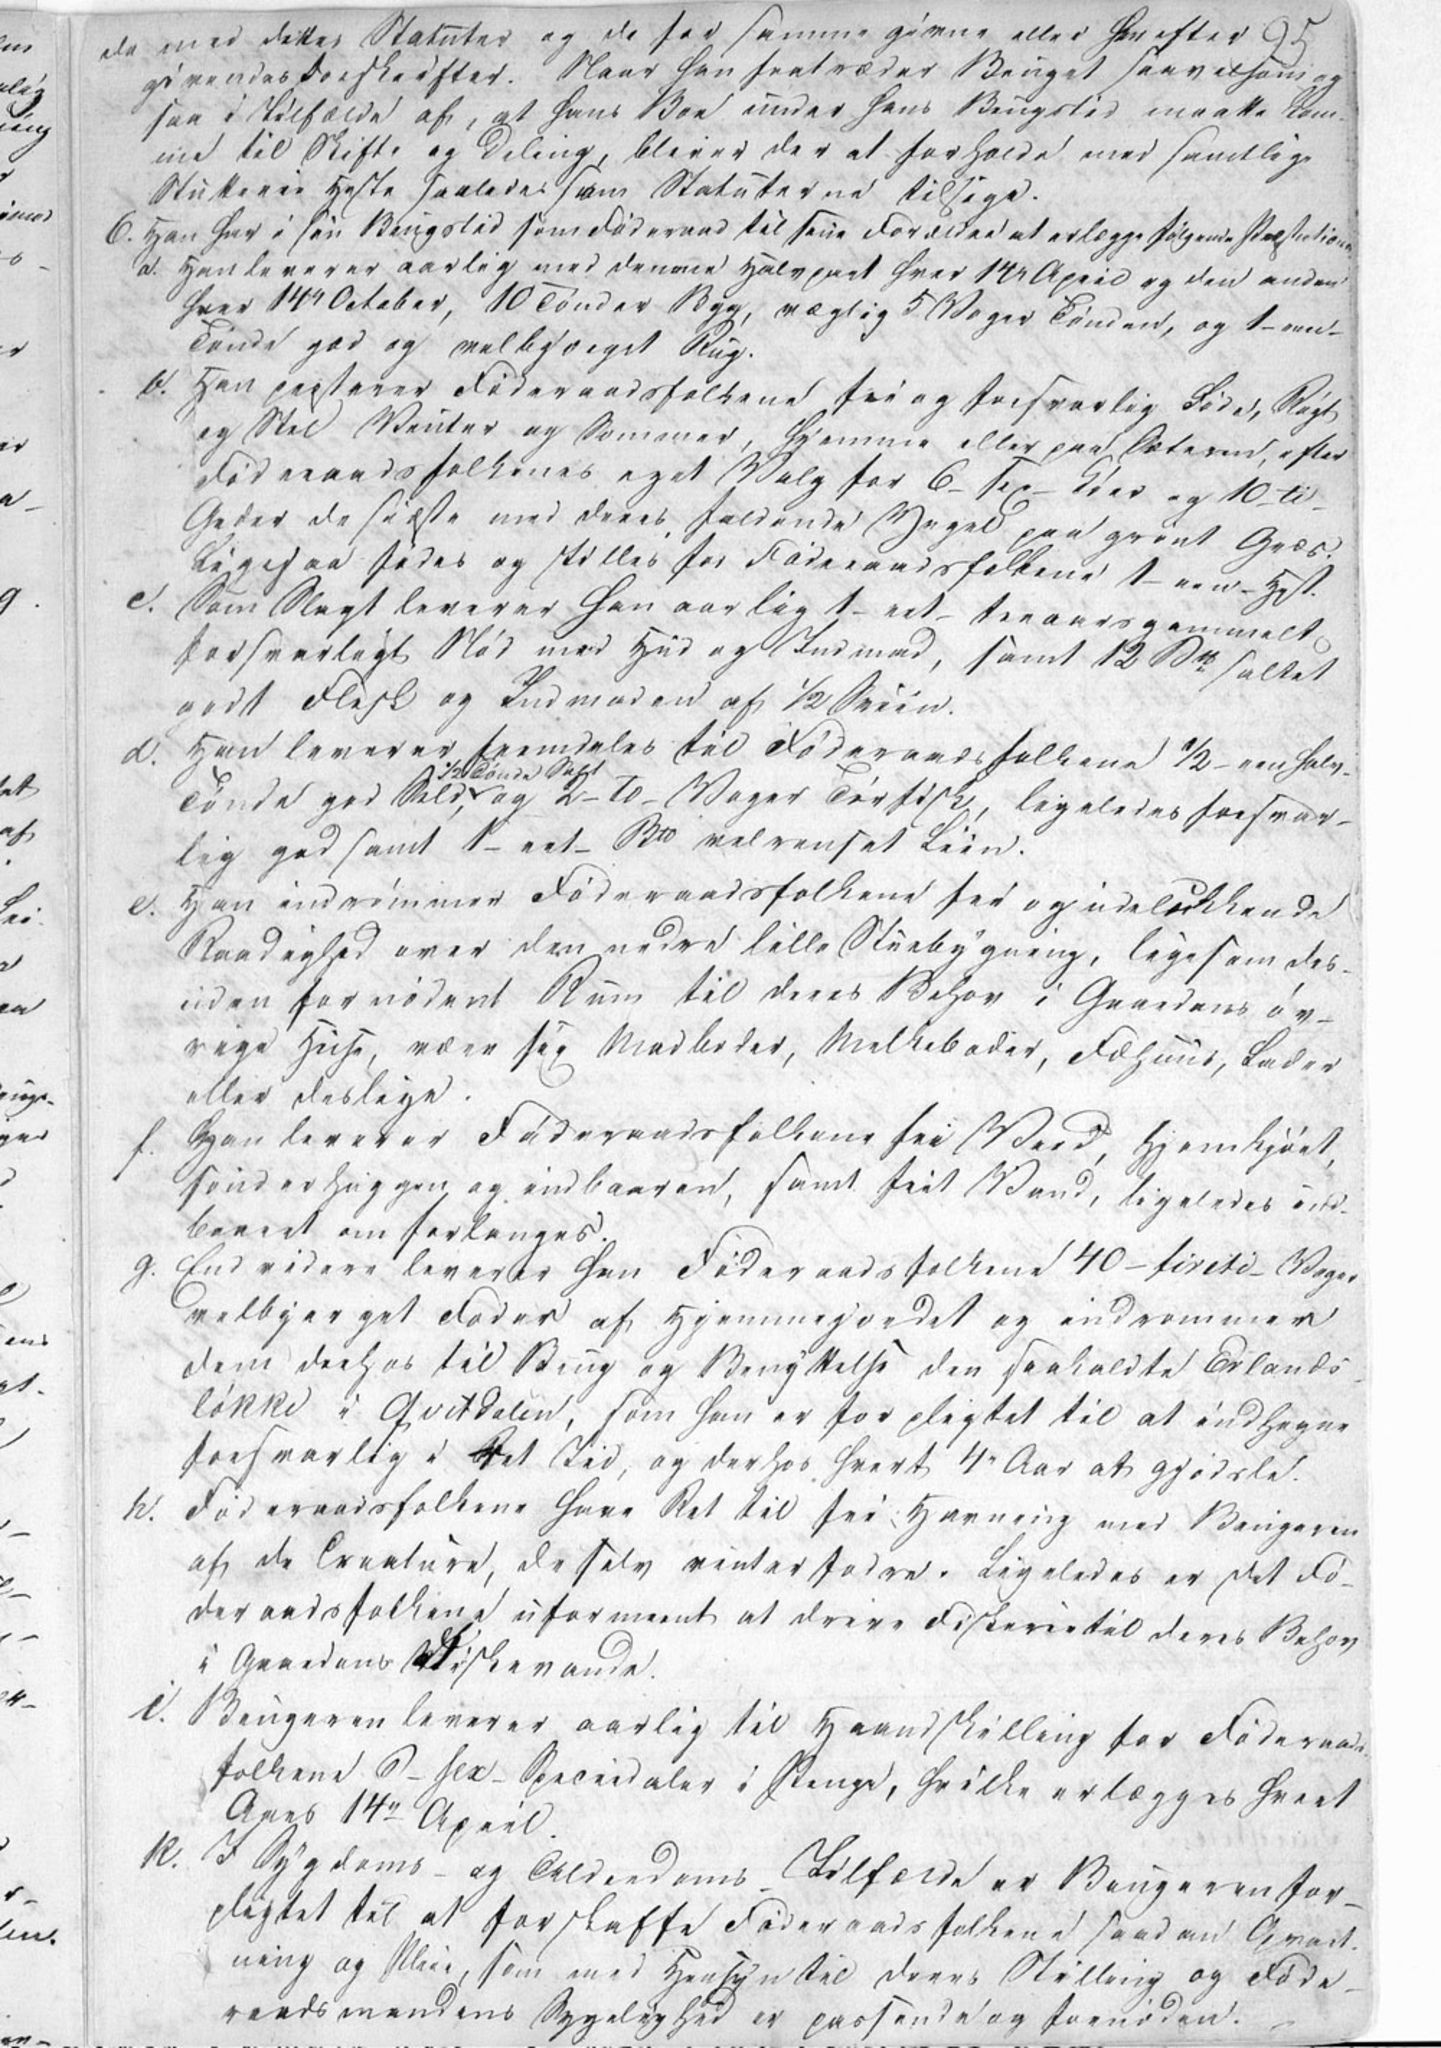 25
de med dettes Statuter og de for samme givne eller herefter
givendes Forskrifter. Naar han fratræder Bruget saavelsom og
saa i Tilfælde af, at hans Boe under hans Brugstid maatte kom-
me til Skifte og Deling, bliver der at forholde med samtlige
Stutterie Heste saaledes som Statuterne tilsige.
6. Han har i sin Brugstid som Föderaad til sine Forældre at erlægge følgende Præstationer
a. Han leverer aarlig med denene Halvpart hver 14de April og den anden
hver 14de October, 10 Tönder Byg, vægtig 5 Voger Tönden, og 1 - een -
Tönde god og velbjerget Rug.
b. Han præsterer Föderaadsfolkene fri og forsvarlig Föde, Røgt
og Stel Vinter og Sommer, hjemme eller paa Sæteren, efter
Föderaadsfolkenes eget Valg for 6 - sex - Köer og 10 - ti -
Geder de sidste med deres faldende Yngel paa grönt Græs.
Ligesaa födes og stilles for Föderaadsfolkene 1 - een - Hest.
c. Som Slagt leverer han aarlig 1 - eet - treaarsgammelt
forsvarligt Nöd med Hud og Indmad, samt 12 B℔ saltet
godt Flesk og Indmaden af 1/2 Sviin.
d. Han leverer fremdeles til Föderaadsfolkene 1/2 - een halv -
1/2 Tönde Salt
Tönde god Sild, og 2 - to - Voger Törfisk, ligeledes forsvar-
lig god samt 1 - eet - B℔ velrenset Liin.
e. Han indrömmer Föderaadsfolkene fri og udelukkende
Raadighed over den nedre lille Stuebygning, ligesom des-
uden fornödent Rum til deres Behov i Gaardens öv-
rige Huse, være sig Madboder, Melkeboder, Fæhuus, Lader
eller deslige.
f. Han leverer Föderaadsfolkene fri Veed, hjemkjört,
sönderhuggen og indbaaren, samt friit Vand, ligeledes ind-
baaret om forlanges.
g. Endvidere leverer han Föderaadsfolkene 40 - fireti - Voger
velbjerget Foder af Hjemmejordet og indrommer
dem derhos til Brug og Benyttelse den saakaldte Erlands-
lökke i Qvitdalen, som han er forpligtet til at indhegne
forsvarlig i Ret Tid, og derhos hvert 4de Aar at gjödsle.
h. Föderaadsfolkene have Ret til fri Havning med Brugeren
af de Creature, de selv vinterfodre. Ligeledes er det Fö-
deraadsfolkene uformeent at drive Fiskerie til deres Behov
i Gaardens Fiskevande.
i. Brugeren leverer aarlig til Haandskilling for Föderaads
folkene 6 - sex - Speciedaler i Penge, hvilke erlægges hvert
Aars 14de April.
k. I Sygdoms- og Alderdoms-Tilfælde er Brugeren for-
pligtet til at forskaffe Föderaadsfolkene saadan Opvart-
ning og Pleie, som med Hensyn til deres Stilling og Föde-
raadsmandens Sygelighed er passende og fornöden.